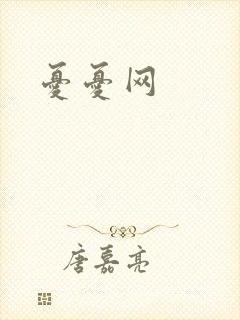 憂憂网
唐嘉亮